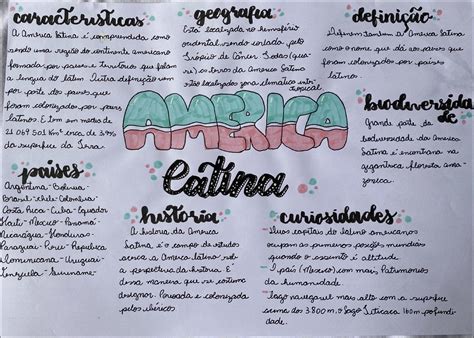 características
A America Latina é compreendida como
sendo uma região do continente americano
formada por países e territórios que falam
a língua do latim. Outra definição vem
por parte dos países que
foram colonizados por países
latinos. E tem em média de
21 069 501 Km² cerca de 3.9%
da superfíce da Terra.
geografia
Está localizada no hemisfério
ocidental, sendo cortada pelo
Trópico de Câncer. Todos (quase)
os terros da America Latina
estão localizados zona climática inter
tropical.
definição
Definem também a America Latina
como o nome que dá aos países que
foram colonizados por países
latino.
biodiversida
de
Grande parte da
biodiversidade da America
Latina é encontrana na
gigantrica floresta ama-
zonica.
AMERICA
Latina
países
Argentina - Bolívia
Brasil - Chile - Colombia
Costa Rica - Cuba - Equador
Haiti - Mexico - Panamá
Nicarágua - Honduras
Paraguai - Peru - Republica
Dominicana - Uruguai -
Venezuela - Suriname -
história
A história da America
Latina é o campo de estudo
acerca a America latina sob
a perspectura da história. E
dessa maneira que se costuma
designar. Povoada e colonizada
pelos ibéricos
curiosidades
- Duas capitais do latino americanos
ocupam as primeiras posições mundiais
quando o assunto é altitude
- 1 país (Mexico) com mais Patrimonios
da humanidade
- lago navegavel mais alto com a superfice
acima dos 3.800 m. o lago Titicaca 180 m profun-
didade.